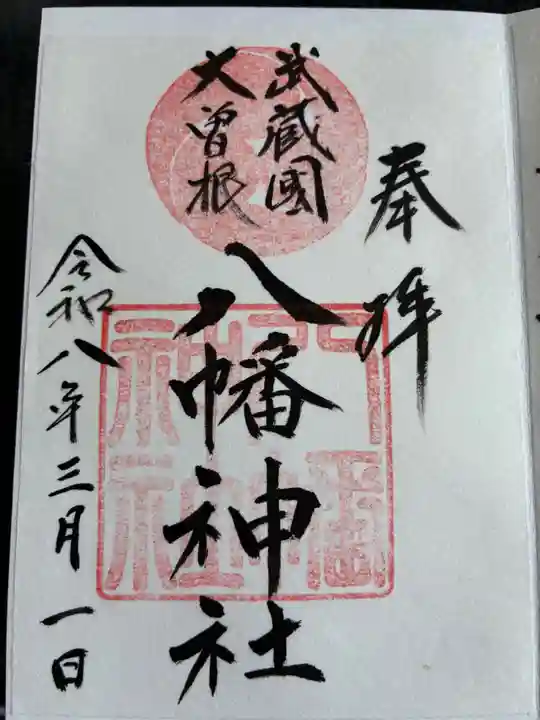 奉拝
武蔵國
大曽根
八幡神社
令和八年三月一日
八幡神社